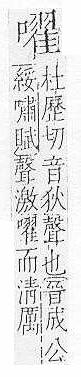 嚁
杜歷切音狄聲也晉成公
綏嘯賦聲激嚁而清厲